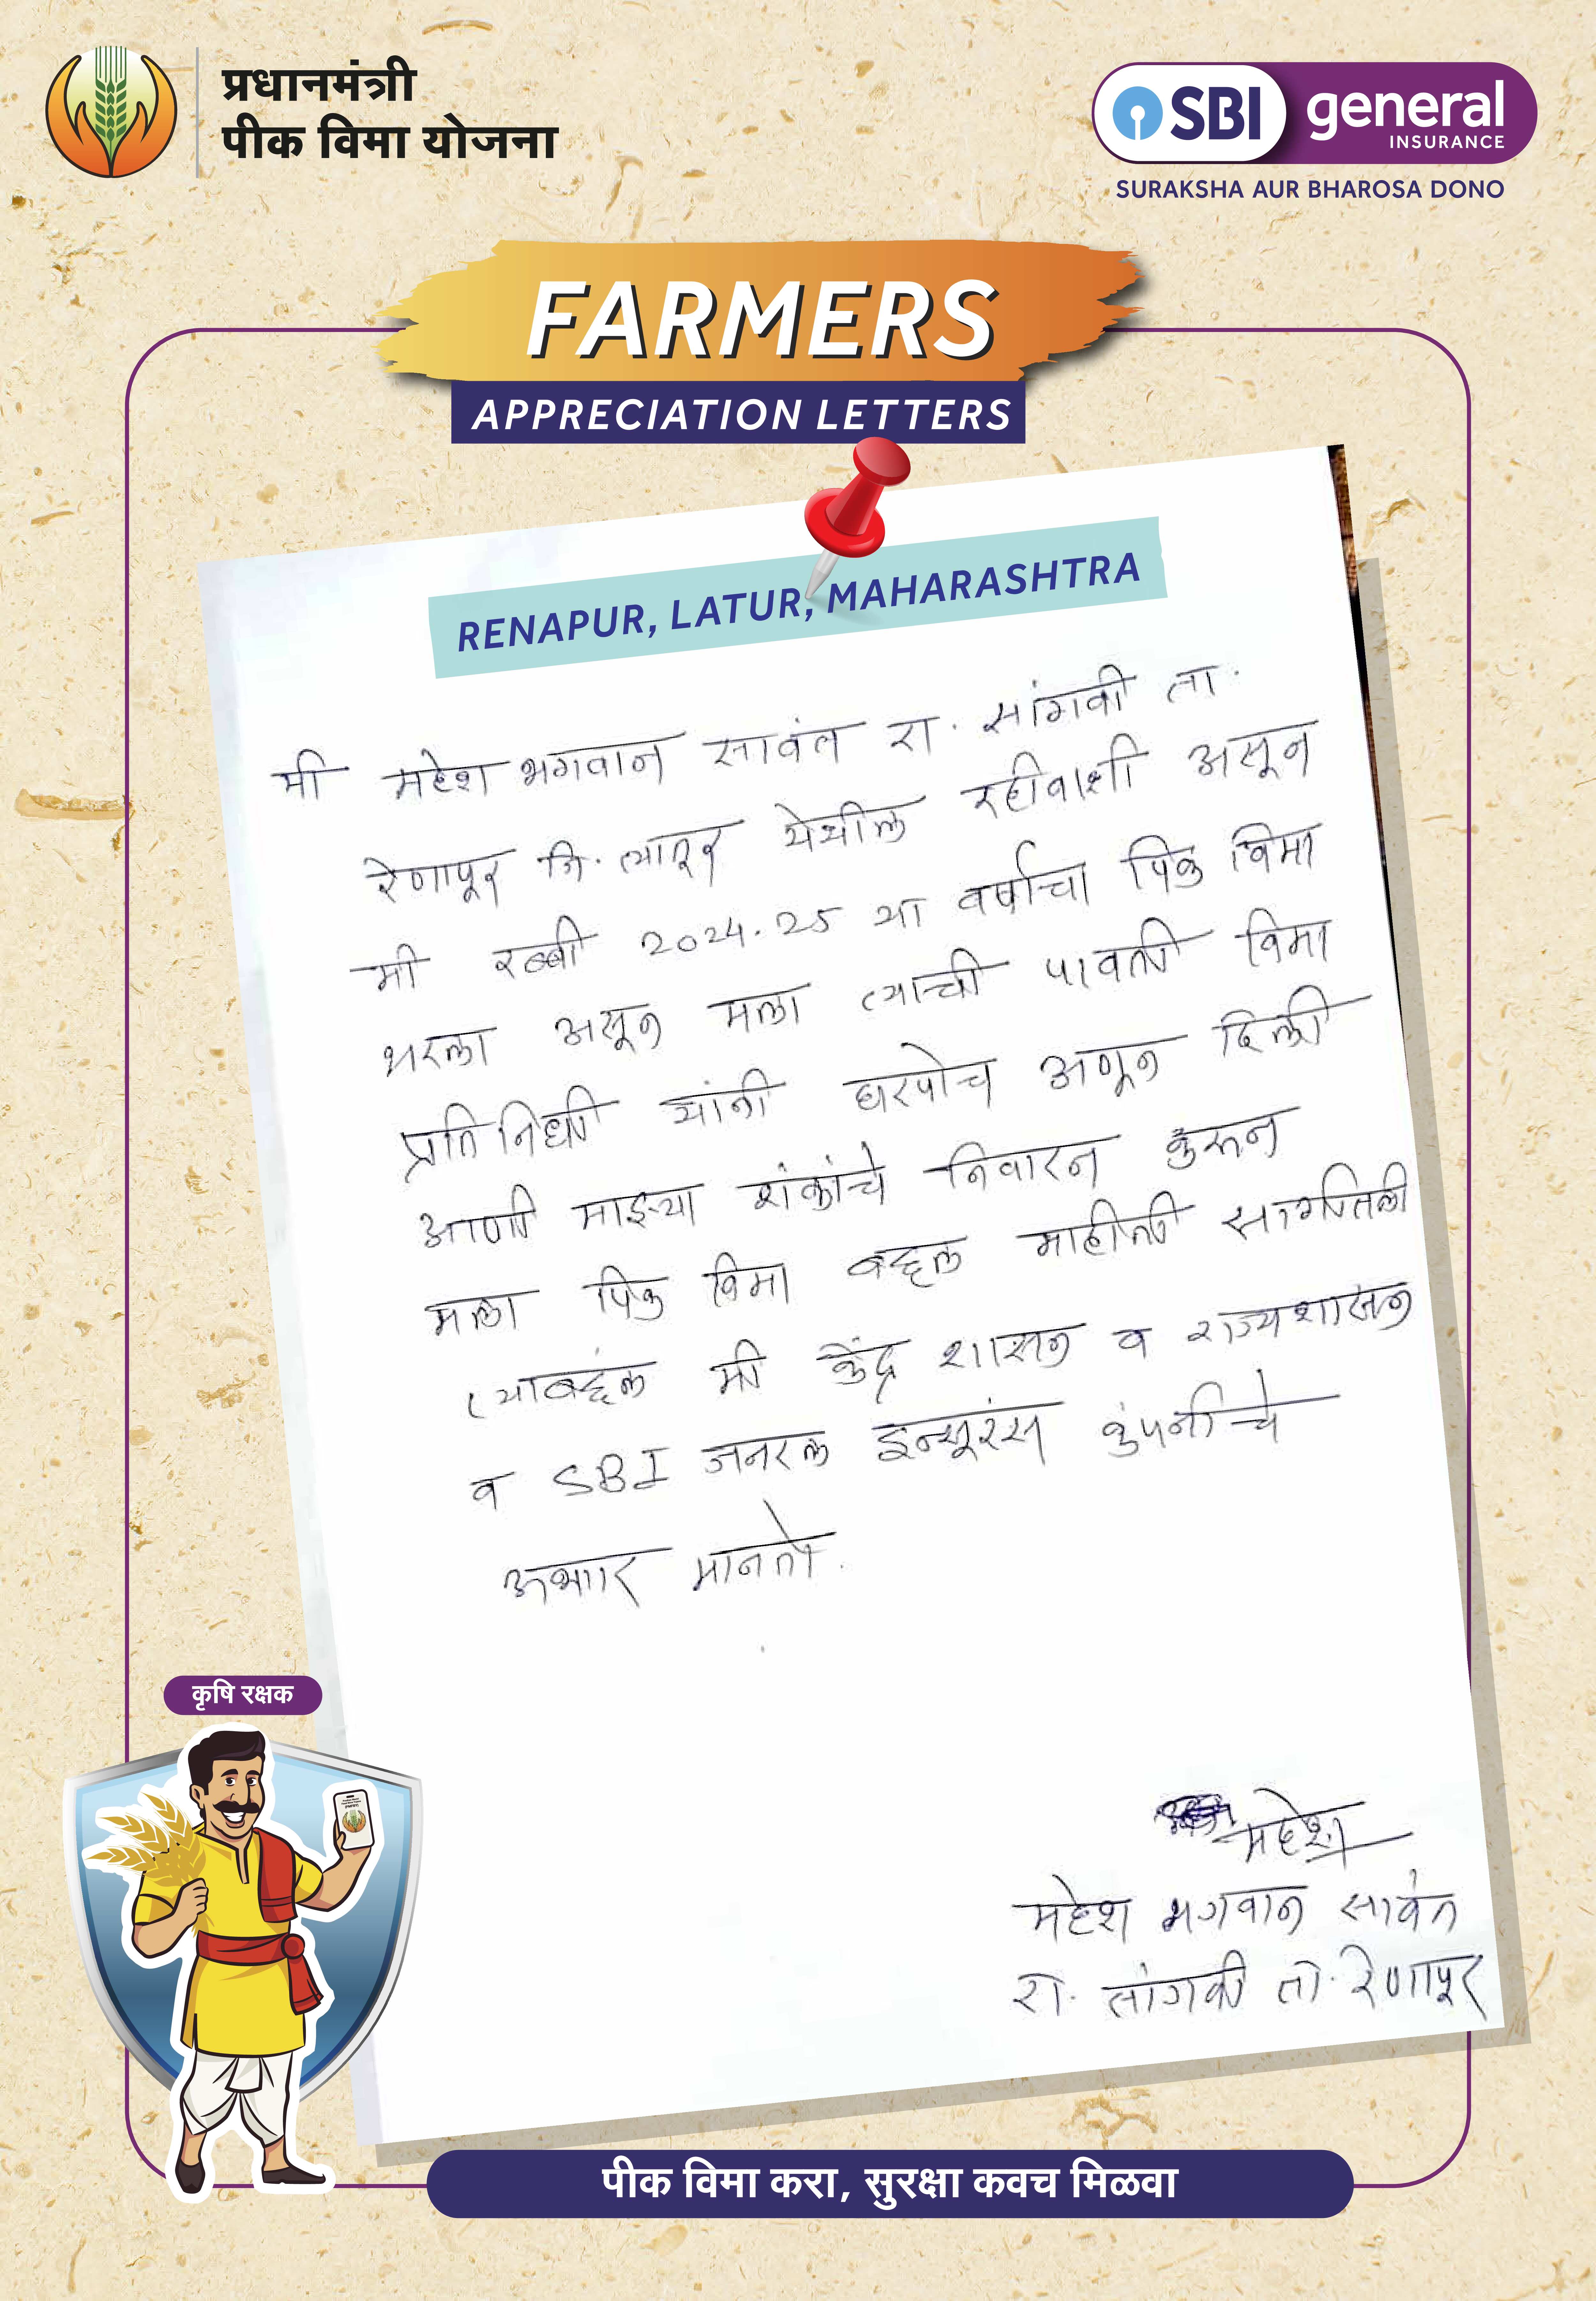 प्रधानमंत्री
पीक विमा योजना
SBI general
INSURANCE
SURAKSHA AUR BHAROSA DONO
FARMERS
APPRECIATION LETTERS
RENAPUR, LATUR, MAHARASHTRA
मी महेश भगवान सावंत रा. सांगवी ता.
रेणापूर जि. लातूर येथील रहीवाशी असून
मी रब्बी 2024.25 या वर्षाचा पिक विमा
भरला असून मला त्याची पावती विमा
प्रतिनिधी यांनी घरपोच आणून दिली
आणी माझ्या शंकांचे निवारन करून
मला पिक विमा बद्दल माहीती सांगितली
त्याबद्दल मी केंद्र शासन व राज्यशासन
व SBI जनरल इन्सूरंस कंपनीचे
अभार मानतो.
महेश
महेश भगवान सावंत
रा. सांगवी ता. रेणापूर
कृषि रक्षक
पीक विमा करा, सुरक्षा कवच मिळवा